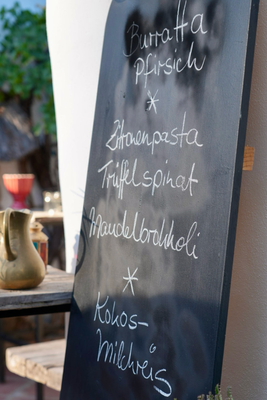 Burratta
pfirsich
*
Zitronenpasta
Trüffelspinat
Mandelbrokkoli
*
Kokos-
Milchreis